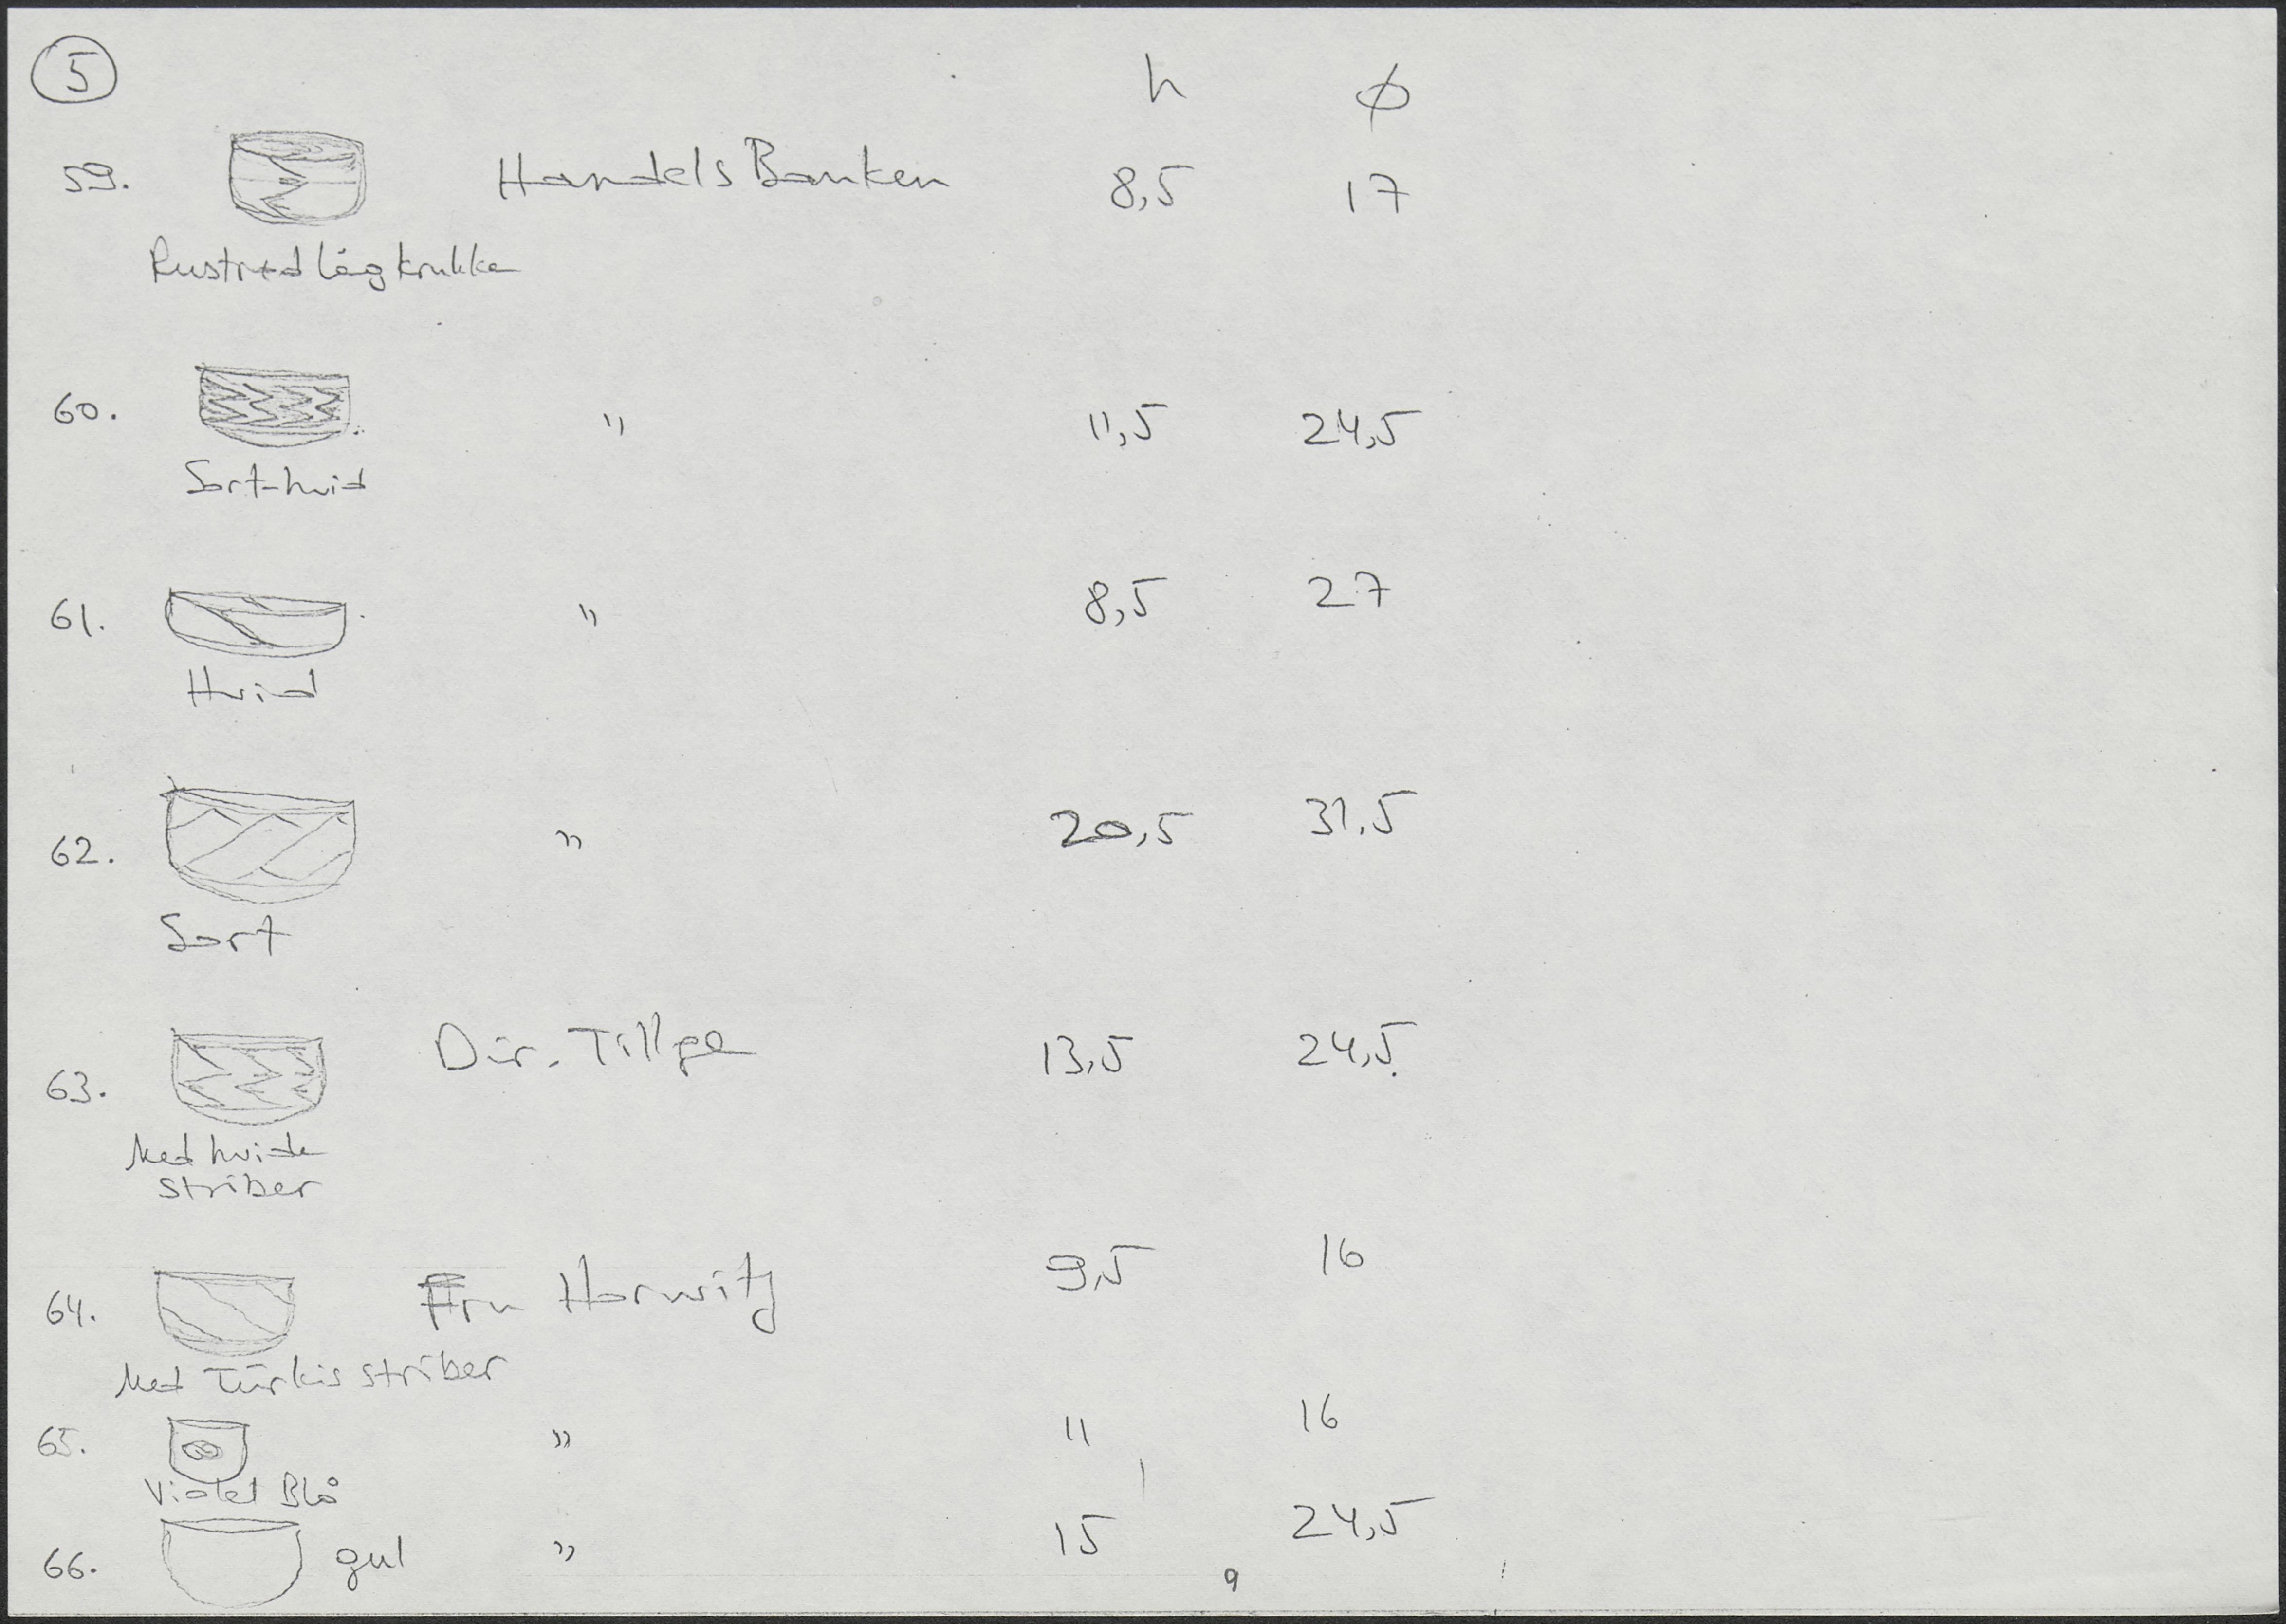 5
h ø
59. HandelsBanken 8,5 17
Rustrød lågkrukke
60. " 11,5 24,5
Sort-hvid
61. " 8,5 27
Hvid
62. " 20,5 31,5
Sort
63. Dir. Tillge 13,5 24,5
Med hvide
striber
64. Fru Horwitz 9,5 16
Med Türkis striber
65. " 11 16
Violet Blå
66. gul " 15 24,5
9